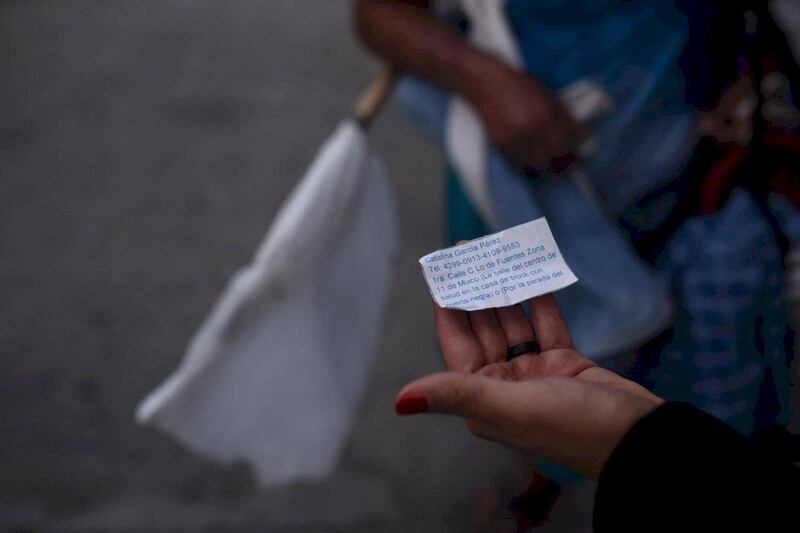 Catalina García Pérez
Tel. 4299-0913-4109-9553
1ra Calle C Lo de Fuentes Zona
11 de Mixco (La calle del centro de
salud en la casa de block con
puerta negra) o (Por la parada del